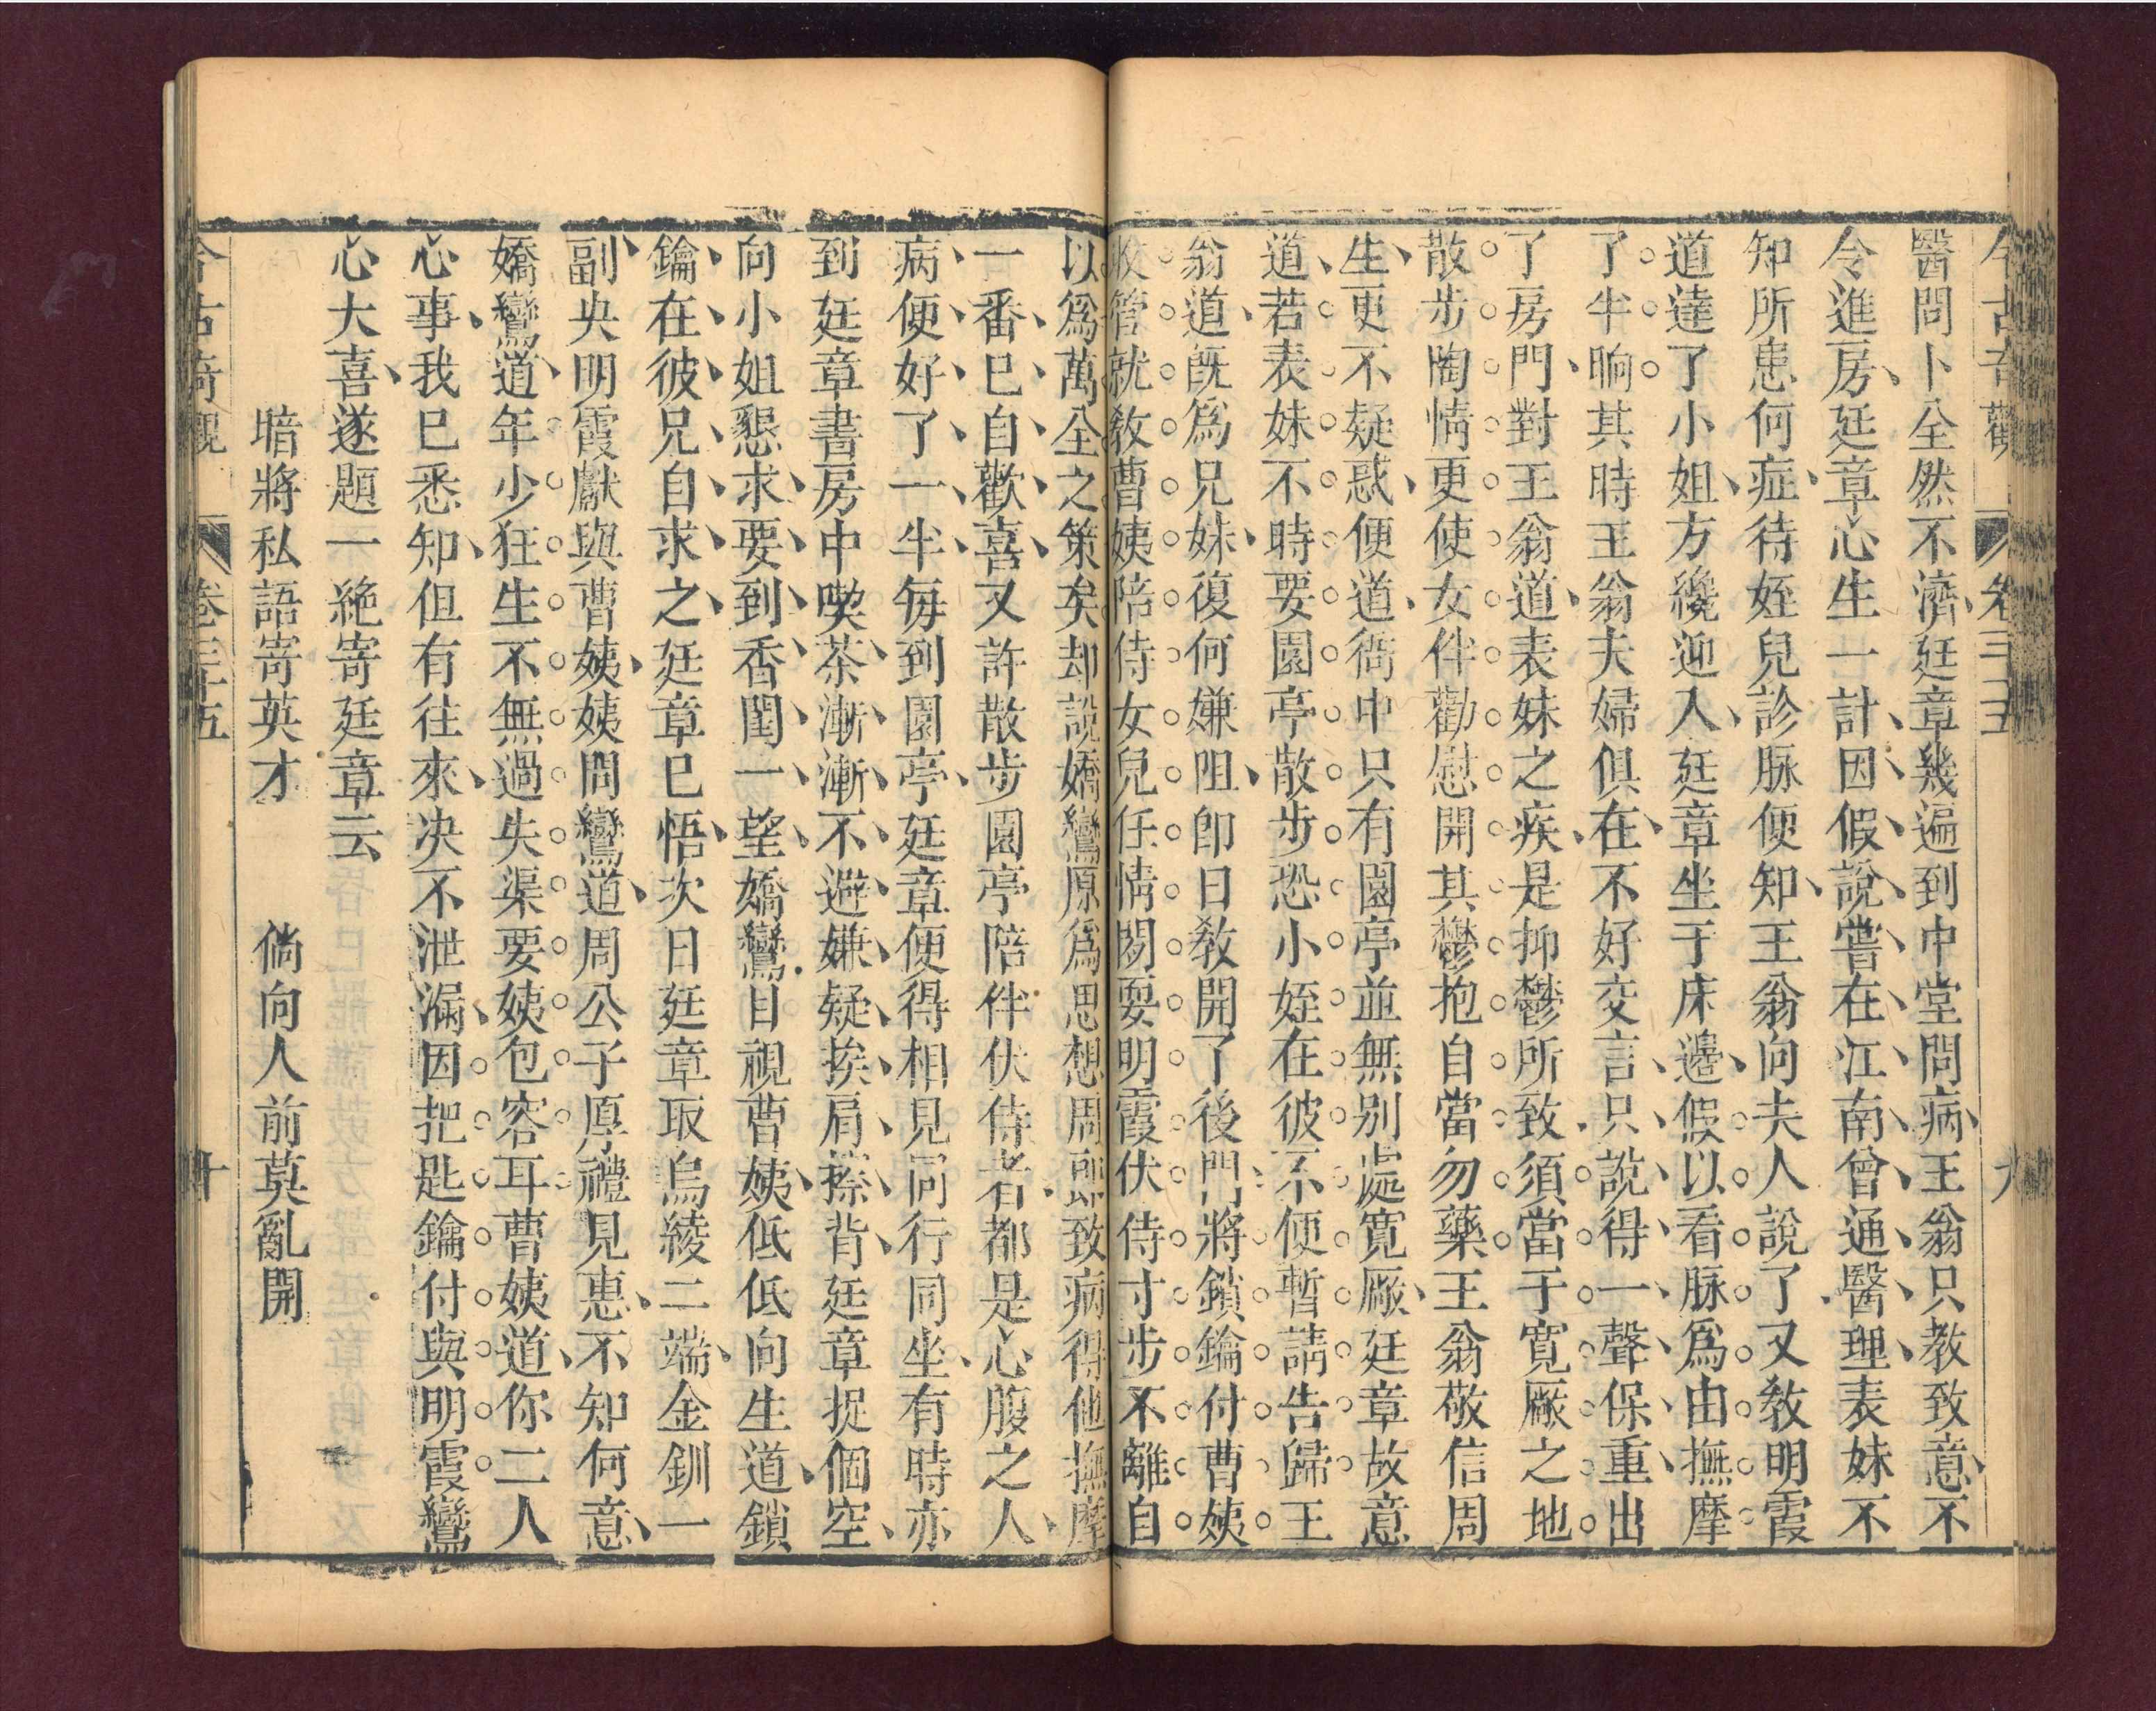 今古奇觀 卷三十五 九
醫問卜全然不濟廷章幾遍到中堂問病王翁只教致意不
令進房廷章心生一計因假說嘗在江南曾通醫理表妹不
知所患何症待姪兒診脉便知王翁向夫人說了又教明霞
道達了小姐方纔迎入廷章坐于床邊假以看脉爲由撫摩
了半晌其時王翁夫婦俱在不好交言只說得一聲保重出
了房門對王翁道表妹之疾是抑鬱所致須當于寛厰之地
散步陶情更使女伴勸慰開其鬱抱自當勿藥王翁敬信周
生更不疑惑便道衙中只有園亭並無別處寛厰廷章故意
道若表妹不時要園亭散步恐小姪在彼不便暫請告歸王
翁道旣爲兄妹復何嫌阻卽日教開了後門將鎖鑰付曹姨
收管就教曹姨陪侍女兒任情閒耍明霞伏侍寸步不離自
以爲萬全之策矣却說嬌鸞原爲思想周郎致病得他撫摩
一番已自歡喜又許散步園亭陪伴伏侍者都是心腹之人
病便好了一半每到園亭廷章便得相見同行同坐有時亦
到廷章書房中喫茶漸漸不避嫌疑挨肩擦背廷章捉個空
向小姐懇求要到香閨一望嬌鸞目視曹姨低低向生道鎖
鑰在彼兄自求之廷章已悟次日廷章取烏綾二端金釧一
副央明霞獻與曹姨姨問鸞道周公子厚禮見惠不知何意
嬌鸞道年少狂生不無過失渠要姨包容耳曹姨道你二人
心事我已悉知但有往來决不泄漏因把匙鑰付與明霞鸞
心大喜遂題一絶寄廷章云
暗將私語寄英才 倘向人前莫亂開
今古奇觀 卷三十五 十